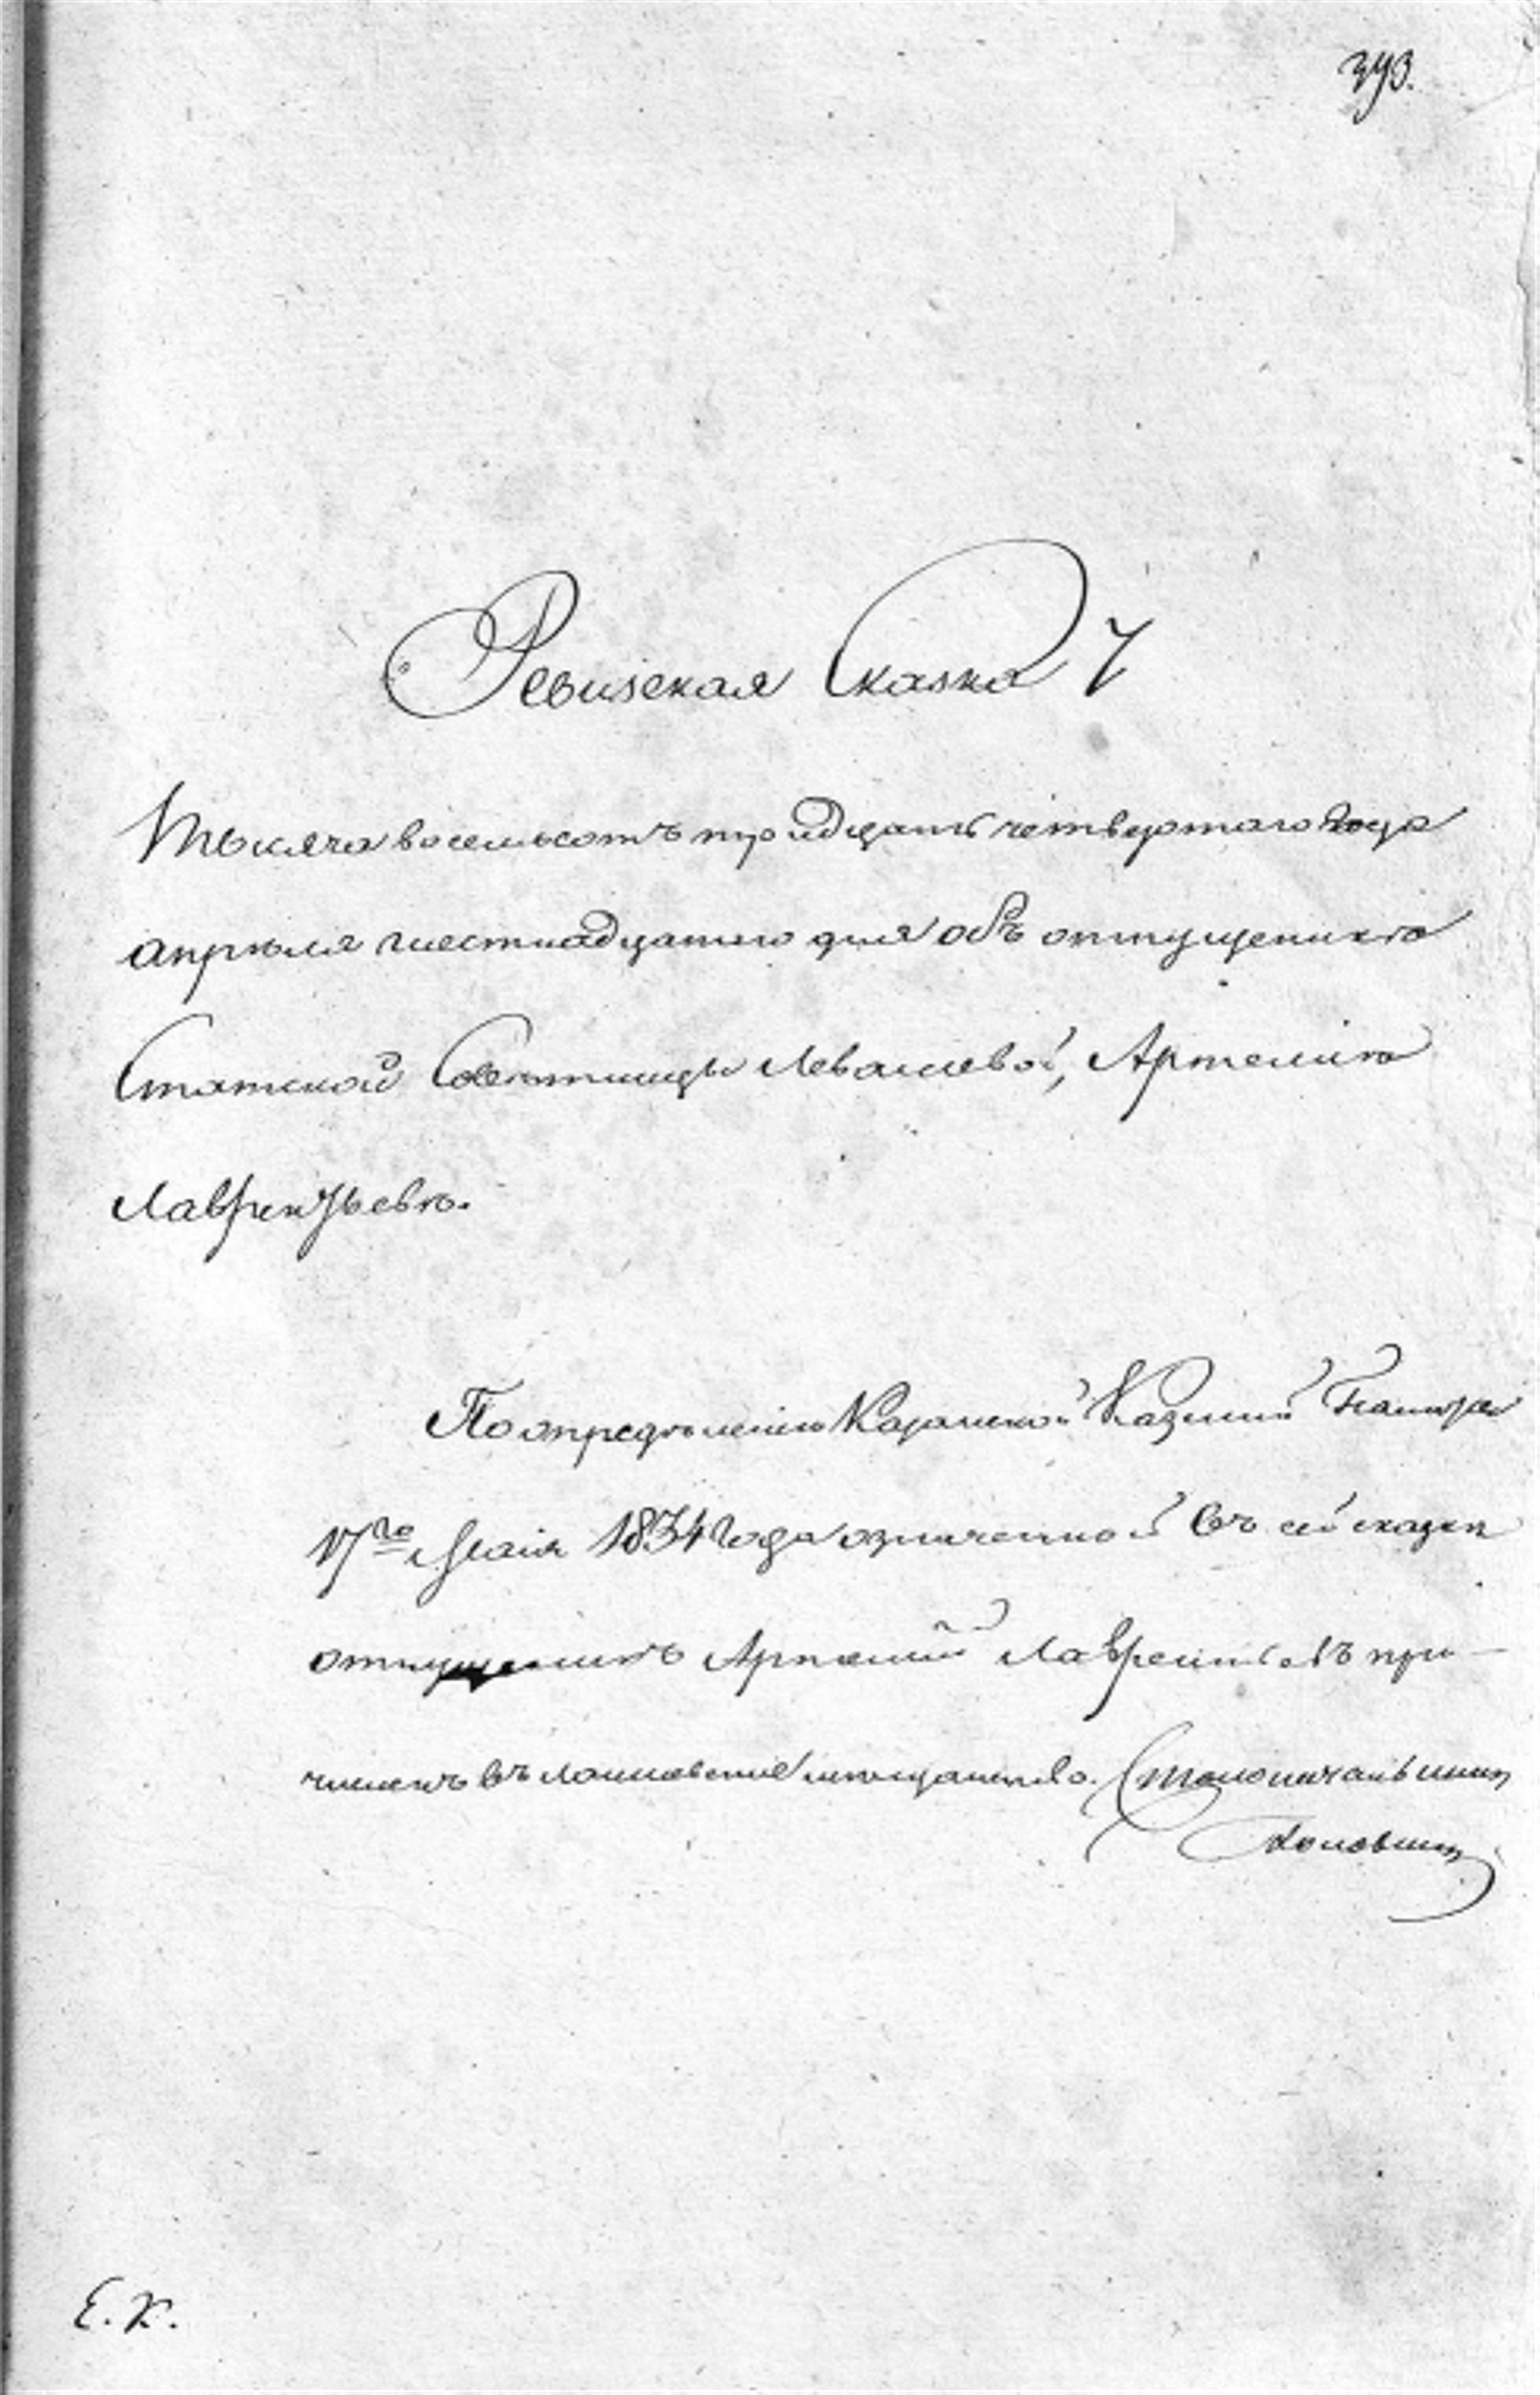 393.
Ревизская Сказка
Тысяча восемьсотъ тридцать четвертаго года
апреля шестнадцатаго дня объ отпущенномъ
Статской Советницы Левашевой, Артемие
Лаврентьеве.
По определению Казанской Казенной Палаты
17го Маія 1834 года означенной въ сей сказки
отпущенникъ Артемий Лаврентьевъ при-
численъ въ Лаишевские мещанство. Столоначальникъ
Е. К.